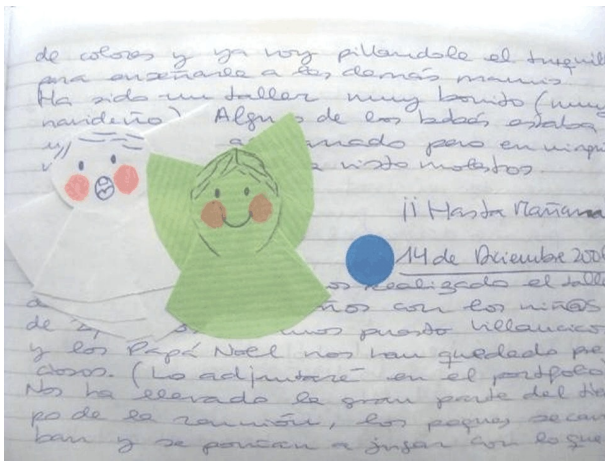 de colores y ya voy pillandole el tranquill
para enseñarle a las demás mamis.
Ha sido un taller muy bonito (muy
navideño). Algun de los bebés estaba
a pero en ningú
visto molestos.
¡¡Hasta Mañana
14 de Diciembre 200
os realizado el talle
ños con los niñ@s
de mos puesto villancico
y los Papá Noel nos han quedado pre
ciosos. (Lo adjuntaré en el portfolio
Nos ha llevado la gran parte del tie
po de la reunión, los peques se can
ban y se ponían a jugar con lo que